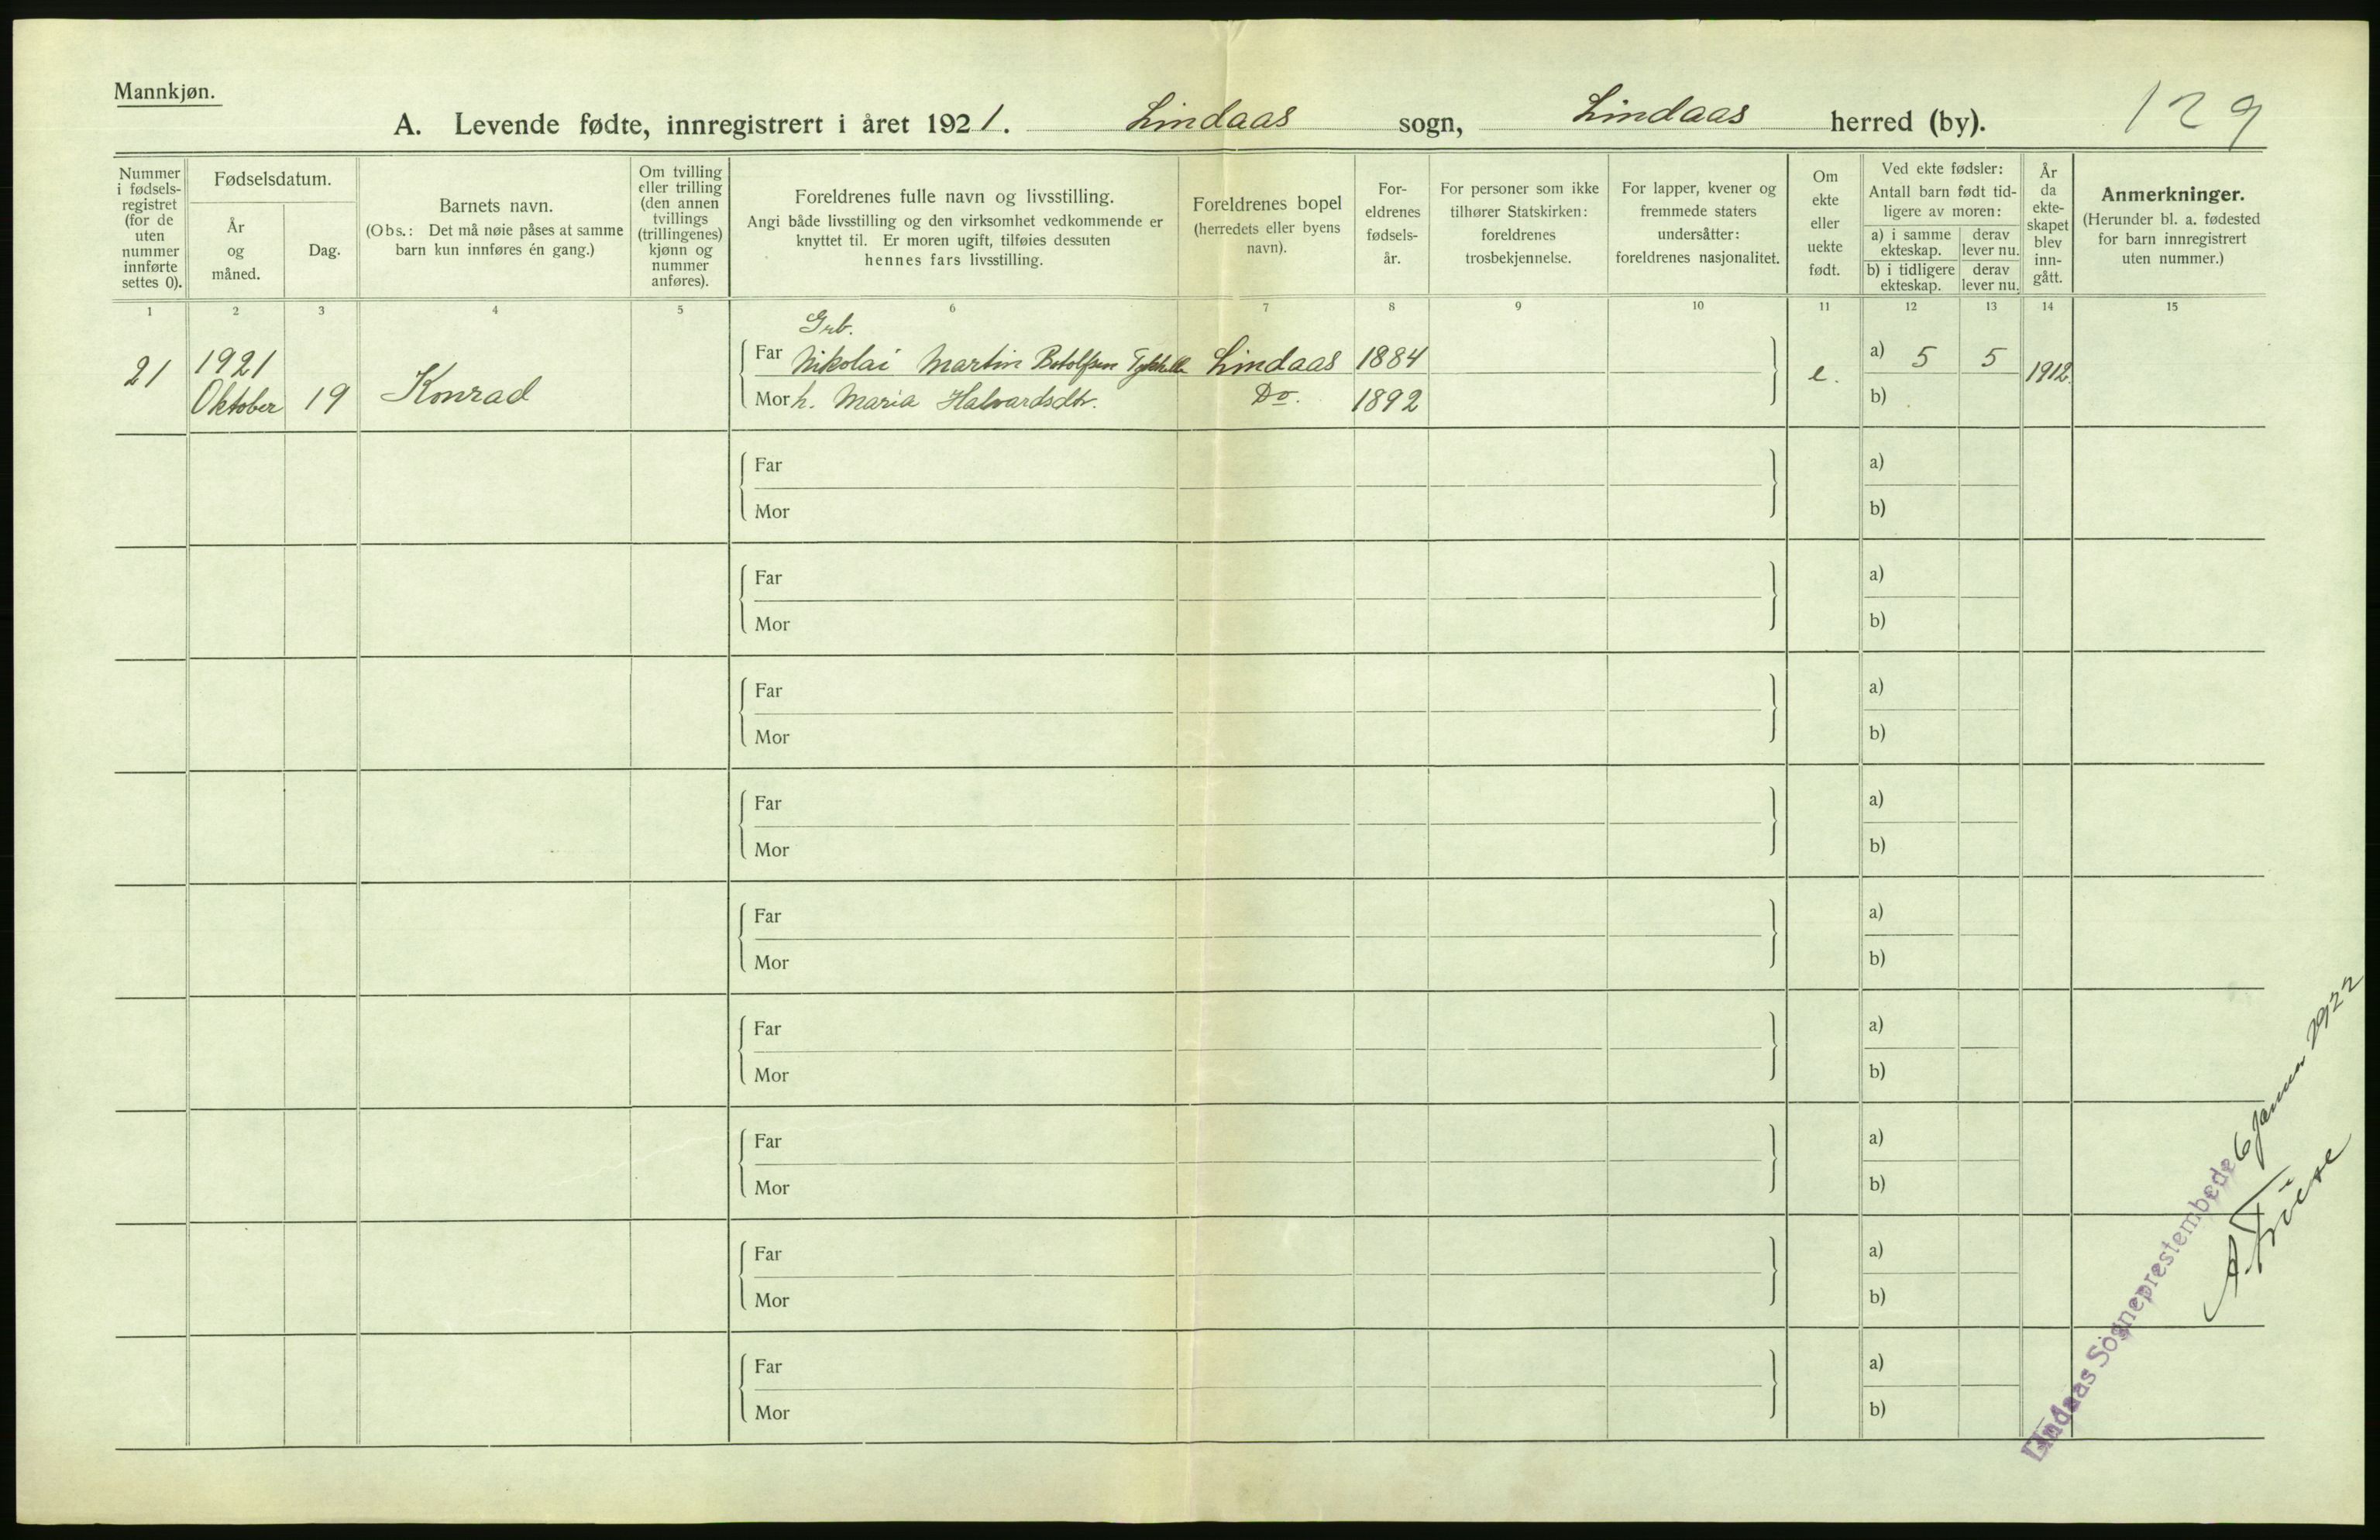 Mannkjøn.
A. Levende fødte, innregistrert i året 1921. Lindaas sogn, Lindaas herred (by). 129
Nummer i fødsels-registret (for de uten nummer innførte settes 0).
Fødselsdatum.
År og måned.
Dag.
Barnets navn.
(Obs.: Det må nøie påses at samme barn kun innføres én gang.)
Om tvilling eller trilling (den annen tvillings (trillingenes) kjønn og nummer anføres).
Foreldrenes fulle navn og livsstilling.
Angi både livsstilling og den virksomhet vedkommende er knyttet til. Er moren ugift, tilføies dessuten hennes fars livsstilling.
Foreldrenes bopel (herredets eller byens navn).
For-eldrenes fødsels-år.
For personer som ikke tilhører Statskirken: foreldrenes trosbekjennelse.
For lapper, kvener og fremmede staters undersåtter: foreldrenes nasjonalitet.
Om ekte eller uekte født.
Ved ekte fødsler:
Antall barn født tid-ligere av moren:
a) i samme ekteskap.
derav lever nu.
b) i tidligere ekteskap.
derav lever nu.
År da ekte-skapet blev inn-gått.
Anmerkninger.
(Herunder bl. a. fødested for barn innregistrert uten nummer.)
1 2 3 4 5 6 7 8 9 10 11 12 13 14 15
Grb.
21 1921 Far Nikolai Martin Botolfsen Lindaas 1884 e. a) 5 5 1912
Oktober 19 Konrad Mor h. Maria Halvardsdtr. Do. 1892 b)
Far a)
Mor b)
Far a)
Mor b)
Far a)
Mor b)
Far a)
Mor b)
Far a)
Mor b)
Far a)
Mor b)
Far a)
Mor b)
Far a)
Mor b)
Far a)
Mor b)
Lindaas Sogneprestembede 6 Januar 1922